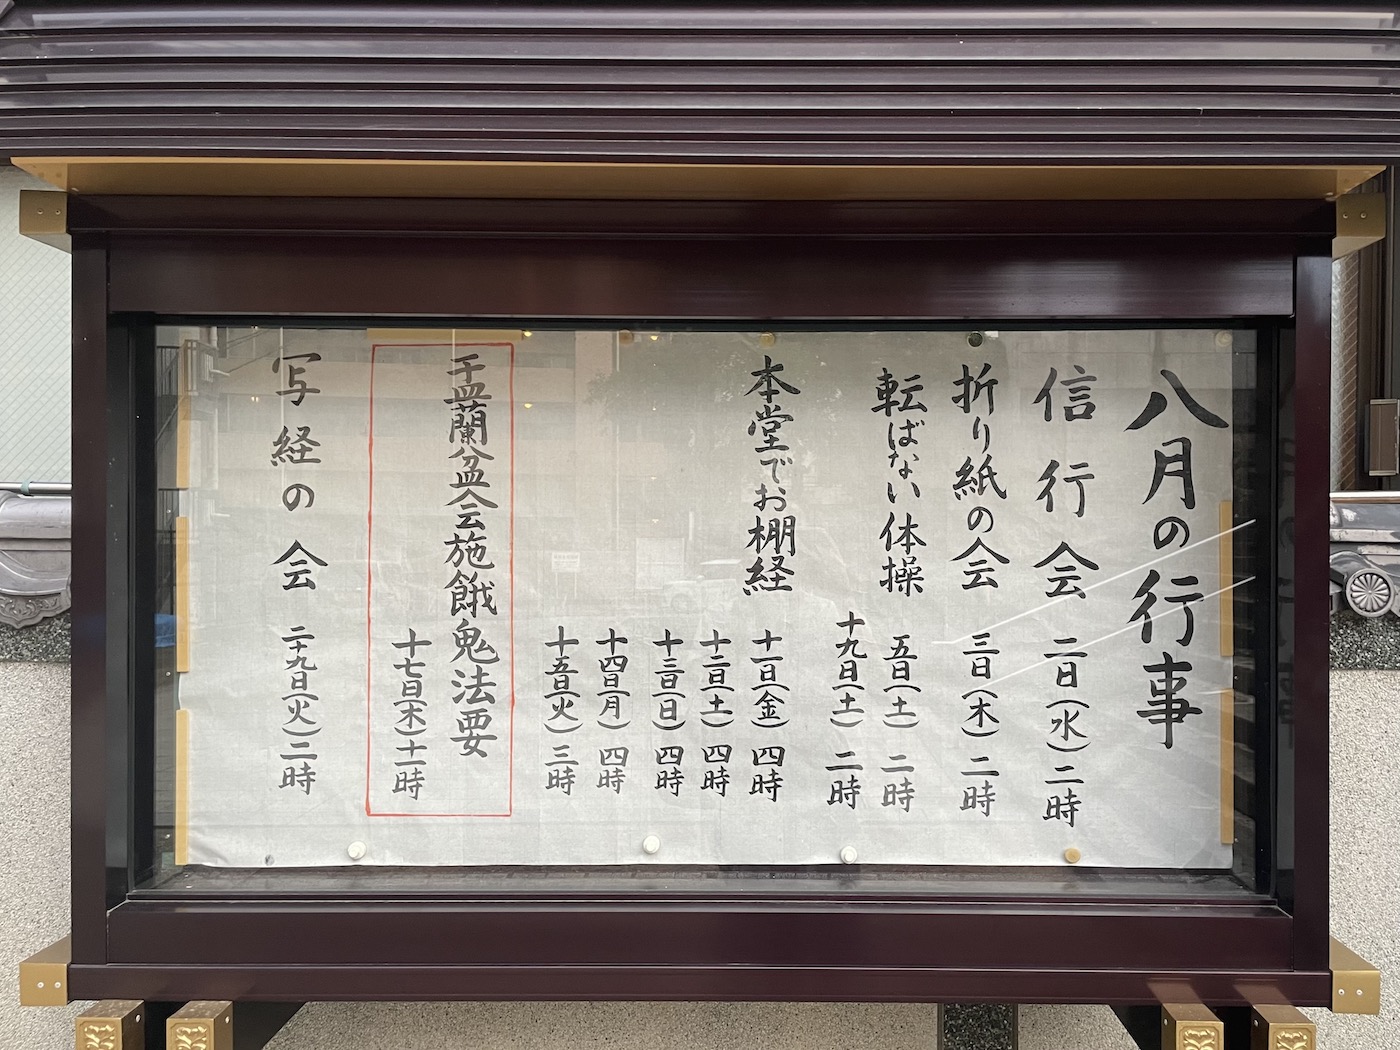 八月の行事
信行会 二日(水)二時
折り紙の会 三日(木)二時
転ばない体操 五日(土)二時
十九日(土)二時
本堂でお棚経 十一日(金)四時
十二日(土)四時
十三日(日)四時
十四日(月)四時
十五日(火)三時
盂蘭盆会施餓鬼法要
十七日(木)十一時
写経の会 二十九日(火)二時